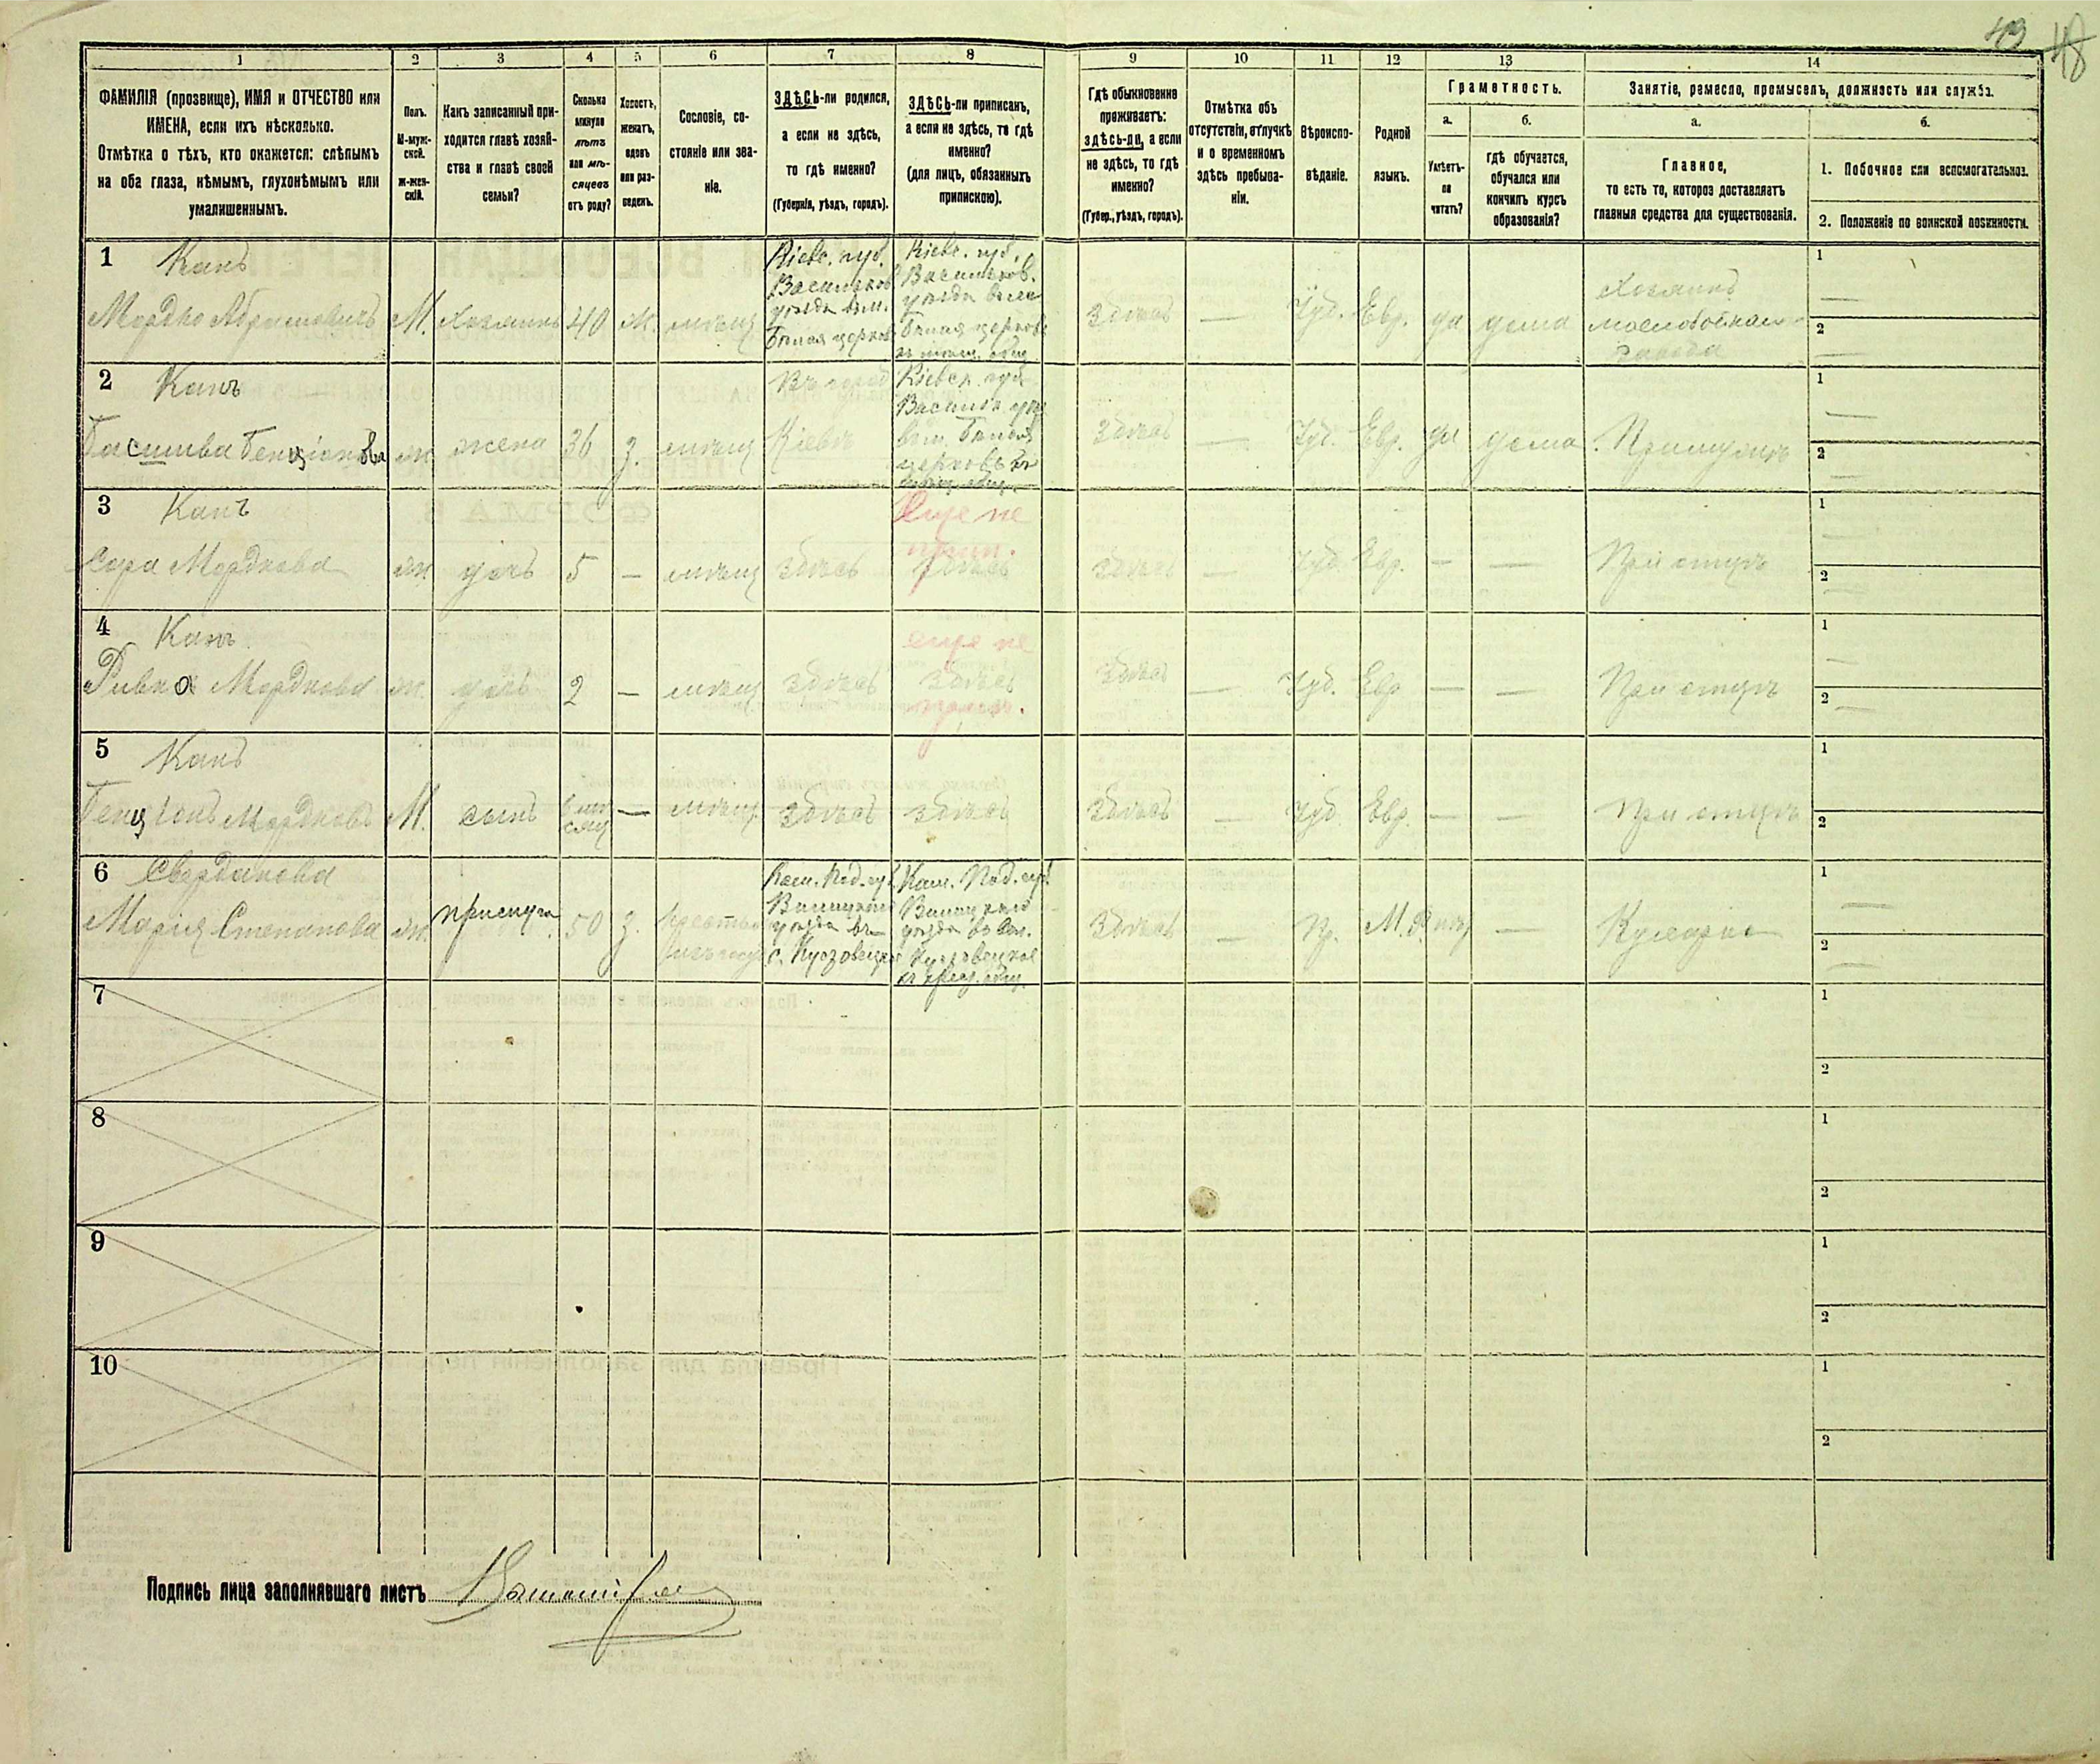 43 48
1 2 3 4 5 6 7 8 9 10 11 12 13 14
ФАМИЛІЯ (прозвище), ИМЯ и ОТЧЕСТВО или
ИМЕНА, если ихъ нѣсколько.
Отмѣтка о тѣхъ, кто окажется: слѣпымъ
на оба глаза, нѣмымъ, глухонѣмымъ или
умалишеннымъ.
Полъ.
М-муж-
ской.
ж-жен-
скій.
Какъ записанный при-
ходится главѣ хозяй-
ства и главѣ своей
семьи?
Сколько
минуло
лѣтъ
или мѣ-
сяцевъ
отъ роду?
Холостъ,
женатъ,
вдовъ
или раз-
веденъ.
Сословіе, со-
стояніе или зва-
ніе.
ЗДѢСЬ-ли родился,
а если не здѣсь,
то гдѣ именно?
(Губернія, уѣздъ, городъ).
ЗДѢСЬ-ли приписанъ,
а если не здѣсь, то гдѣ
именно?
(для лицъ, обязанныхъ
припискою).
Гдѣ обыкновенно
проживаетъ:
здѣсь-ли, а если
не здѣсь, то гдѣ
именно?
(Губер., уѣздъ, городъ).
Отмѣтка объ
отсутствіи, отлучкѣ
и о временномъ
здѣсь пребыва-
ніи.
Вѣроиспо-
вѣданіе.
Родной
языкъ.
Грамотность.
а.
Умѣетъ-
ли
читать?
б.
гдѣ обучается,
обучался или
кончилъ курсъ
образованія?
Занятіе, ремесло, промыселъ, должность или служба.
а.
Главное,
то есть то, которое доставляетъ
главныя средства для существованія.
б.
1. Побочное или вспомогательное.
2. Положеніе по воинской повинности.
1 Канъ
Мордко Абрамовичъ М. Хозяинъ 40 ж. мѣщ
Кіевс. губ.
Васильков.
уѣзда въ м.
Бѣлая церковь
Кіевс. губ.
Васильков.
уѣзда въ м.
Бѣлая церковь
здѣсь — Іуд. Евр. да дома
Хозяинъ
маслобойнаго
завода
1 —
2 —
2 Канъ
ж. жена 36 з. мѣщ
Кіевѣ
Кіевск. губ.
Бѣлая
церковь
здѣсь — Іуд. Евр. да дома При мужѣ
1 —
2 —
3 Канъ
Сора Мордкова ж. дочь 5 — мѣщ здѣсь
Еще не
здѣсь
здѣсь — Іуд. Евр. — — При отцѣ
1 —
2 —
4 Канъ
Ривка Мордкова ж. дочь 2 — мѣщ здѣсь
еще не
здѣсь
здѣсь — Іуд. Евр — — При отцѣ
1 —
2 —
5 Канъ
Бенціонъ Мордковъ М. сынъ — мѣщ. здѣсь здѣсь
здѣсь — Іуд. Евр. — — При отцѣ
1
2
6
Марія Степанова ж. прислуга 50 з.
Кам. Под. губ.
Винницкаго
уѣзда въ
Кам. Под. губ.
Винницкаго
уѣзда
здѣсь — Пр. — Кухарка
1 —
2 —
7 1
2
8 1
2
9 1
2
10 1
2
Подпись лица заполнявшаго листъ